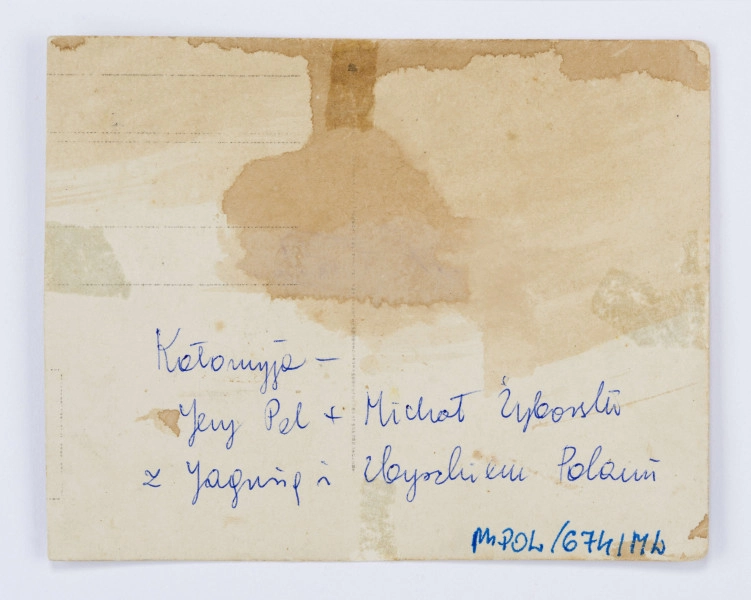 Kołomyja –
Jerzy Pol + Michał Żyborski
z Jagusią i Zbyszkiem Polami
MPOL/674/ML